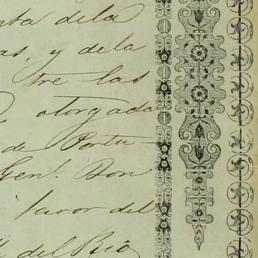 sta dela
as, y dela
tre las
otorgada
de Portu-
Gen. Don
favor del
del Rio